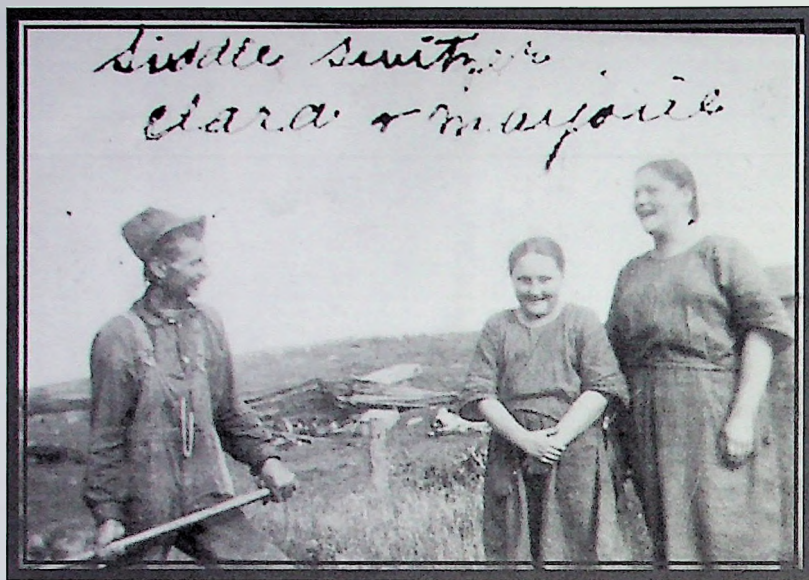 Siddle Switzer
Clara & Marjorie